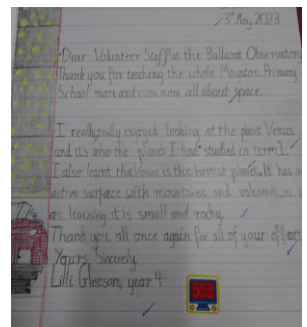 5th May, 2023
Dear Volunteer Staff at the Ballarat Observatory
Thank you for teaching the whole Mountain Primary
School more and even more all about space.
I really really enjoyed looking at the planet Venus
and its also the planet I had studied in term 1.
I also learnt that Venus is the hottest planet. It has an
active surface with mountains and volcanoes, as
as learning it is small and rocky.
Thank you all once again for all of your effort
Yours Sincerely
Lilli Gleeson, year 4